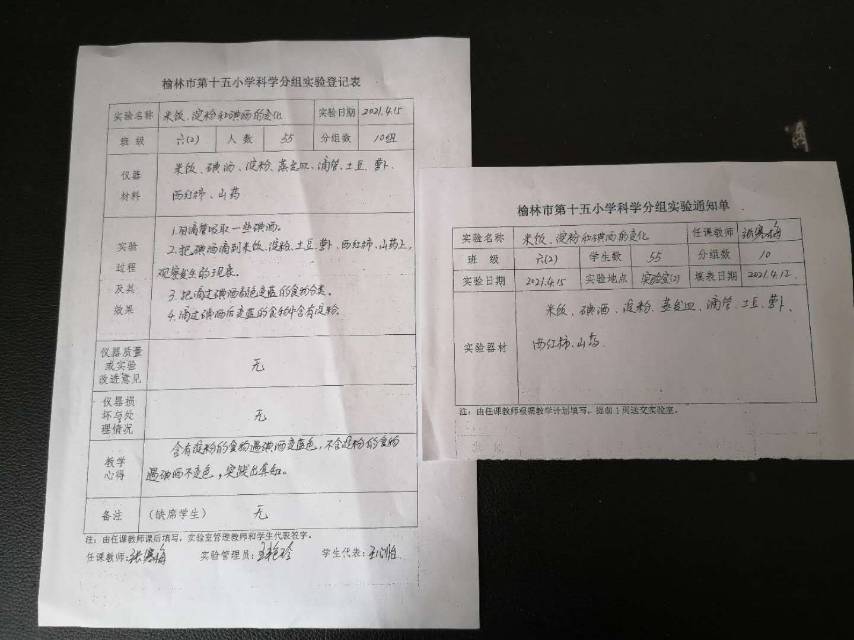 榆林市第十五小学科学分组实验登记表
实验名称 米饭、淀粉和碘酒的变化 实验日期 2021.4.15
班级 六(2) 人数 55 分组数 10组
仪器材料 米饭、碘酒、淀粉、蒸发皿、滴管、土豆、萝卜、
西红柿、山药
实验过程及其效果 1.用滴管吸取一些碘酒。
2.把碘酒滴到米饭、淀粉、土豆、萝卜、西红柿、山药上,
观察发生的现象。
3.把滴过碘酒颜色变蓝的食物分类。
4.滴过碘酒后变蓝的食物中含有淀粉。
仪器质量或实验改进意见 无
仪器损坏与处理情况 无
教学心得 含有淀粉的食物遇碘酒变蓝色,不含淀粉的食物
遇碘酒不变色,实验出真知。
备注 (缺席学生) 无
注:由任课教师课后填写,实验室管理教师和学生代表签字。
任课教师:张 梅 实验管理员:王艳玲 学生代表:王
榆林市第十五小学科学分组实验通知单
实验名称 米饭、淀粉和碘酒的变化 任课教师 张 梅
班级 六(2) 学生数 55 分组数 10
实验日期 2021.4.15 实验地点 实验室(2) 填表日期 2021.4.12
实验器材 米饭、碘酒、淀粉、蒸发皿、滴管、土豆、萝卜、
西红柿、山药.
注:由任课教师根据教学计划填写,提前1周送交实验室。